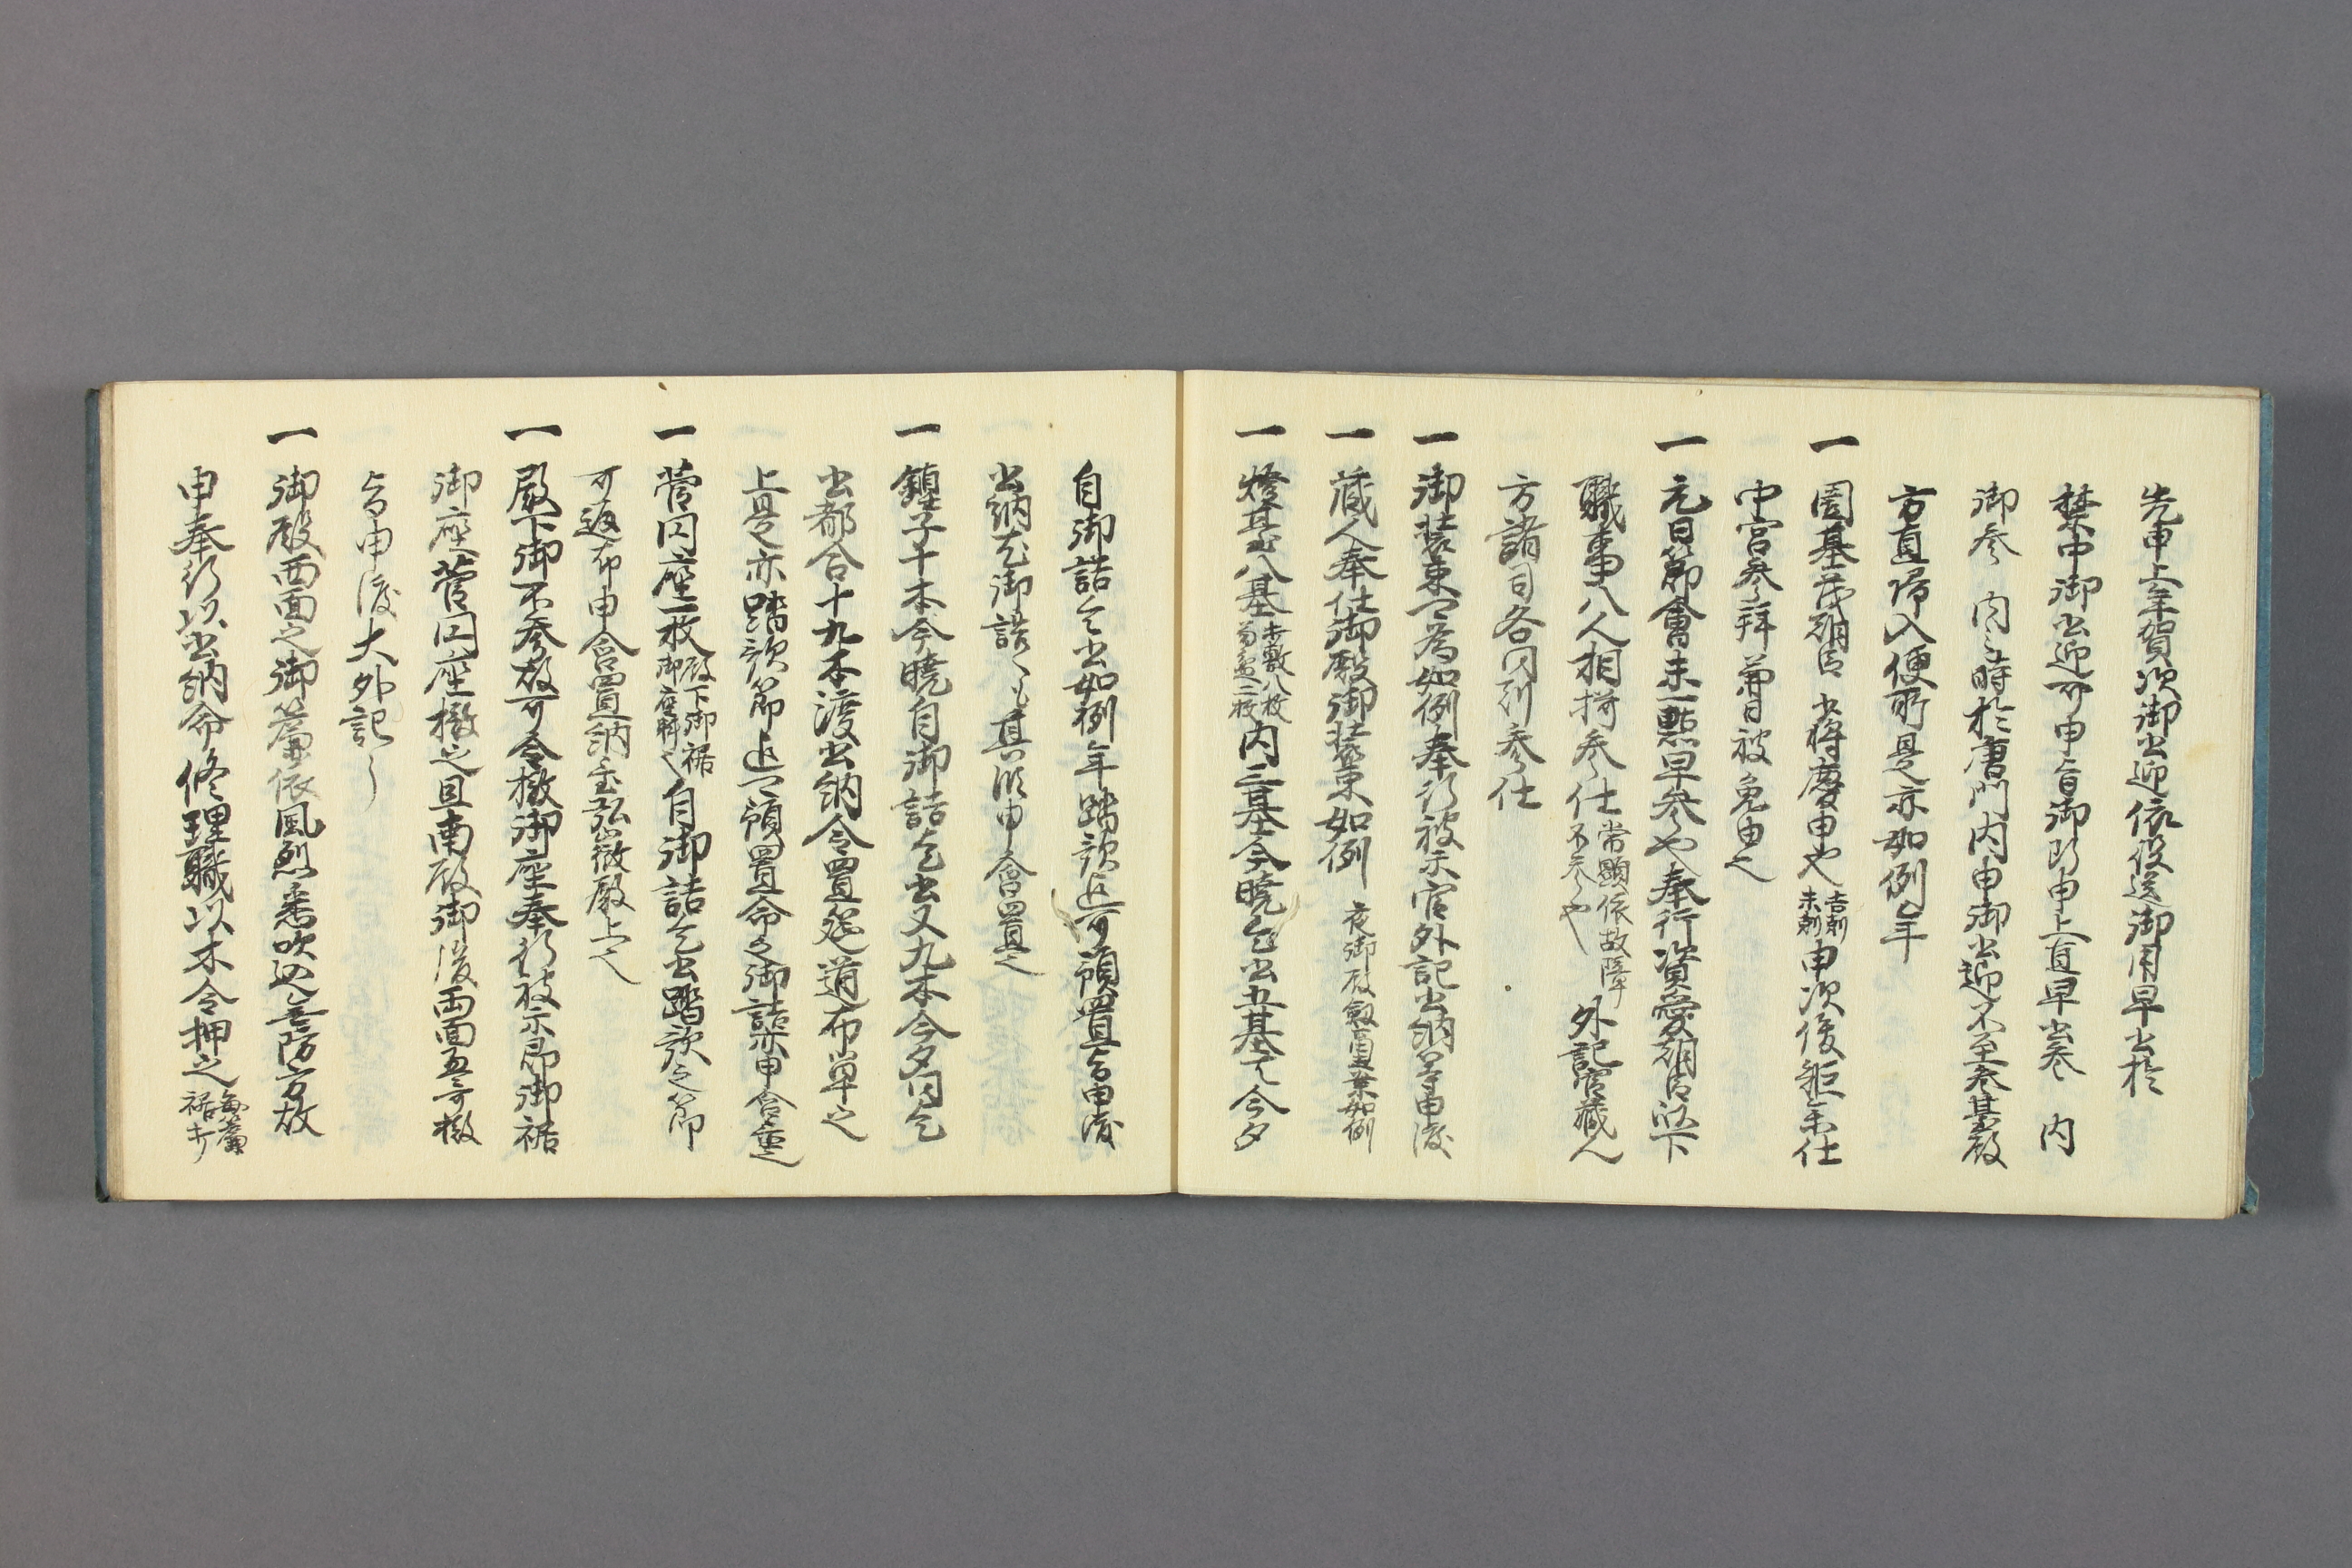 先申上年賀次御出迎依役送御用早出於
禁中御出迎可申旨御断申上直早出参 内
御参 内之時於唐門内申御出迎入至参其殿
方直帰入便所是亦如例年
一 園基茂朝臣 少将慶申也 吉刻未刻 申次俊矩奉仕
中宮参拝兼日被免由也
一 元日節會未一點早参也奉行資愛朝臣以下
職事八人相揃参仕 常顕依故障不参也 外記官蔵人
方諸司各同刻参仕
一 御装束可為如例奉行被示官外記出納等申渡
一 蔵人奉仕御殿御装束如例 夜御殿剱璽案如例
一 燈基八基 内三基今暁乞出五基 今夕
自御詰乞出如例年踏歌迄可預置旨申渡
出納尤御詰 其段申含置之
一 鎮子十本今暁自御詰乞出又九本今夕同乞
出都合十九本渡出納令置筵道布単也
上是亦踏歌節迄可預置命之御詰亦申含置之
一 菅円座一枚 殿下御裾御座料也 自御詰乞出踏歌之節
可返却申含置納 弘徽殿上也
一 殿下御不参故可令撤御座奉行被示即御裾
御座菅円座撤之且南殿御後両面 可撤
旨申渡大外記了
一 御殿西面之御簾依風烈悉吹込無防方故
申奉行以出納命修理職以木令押之 毎簾裾